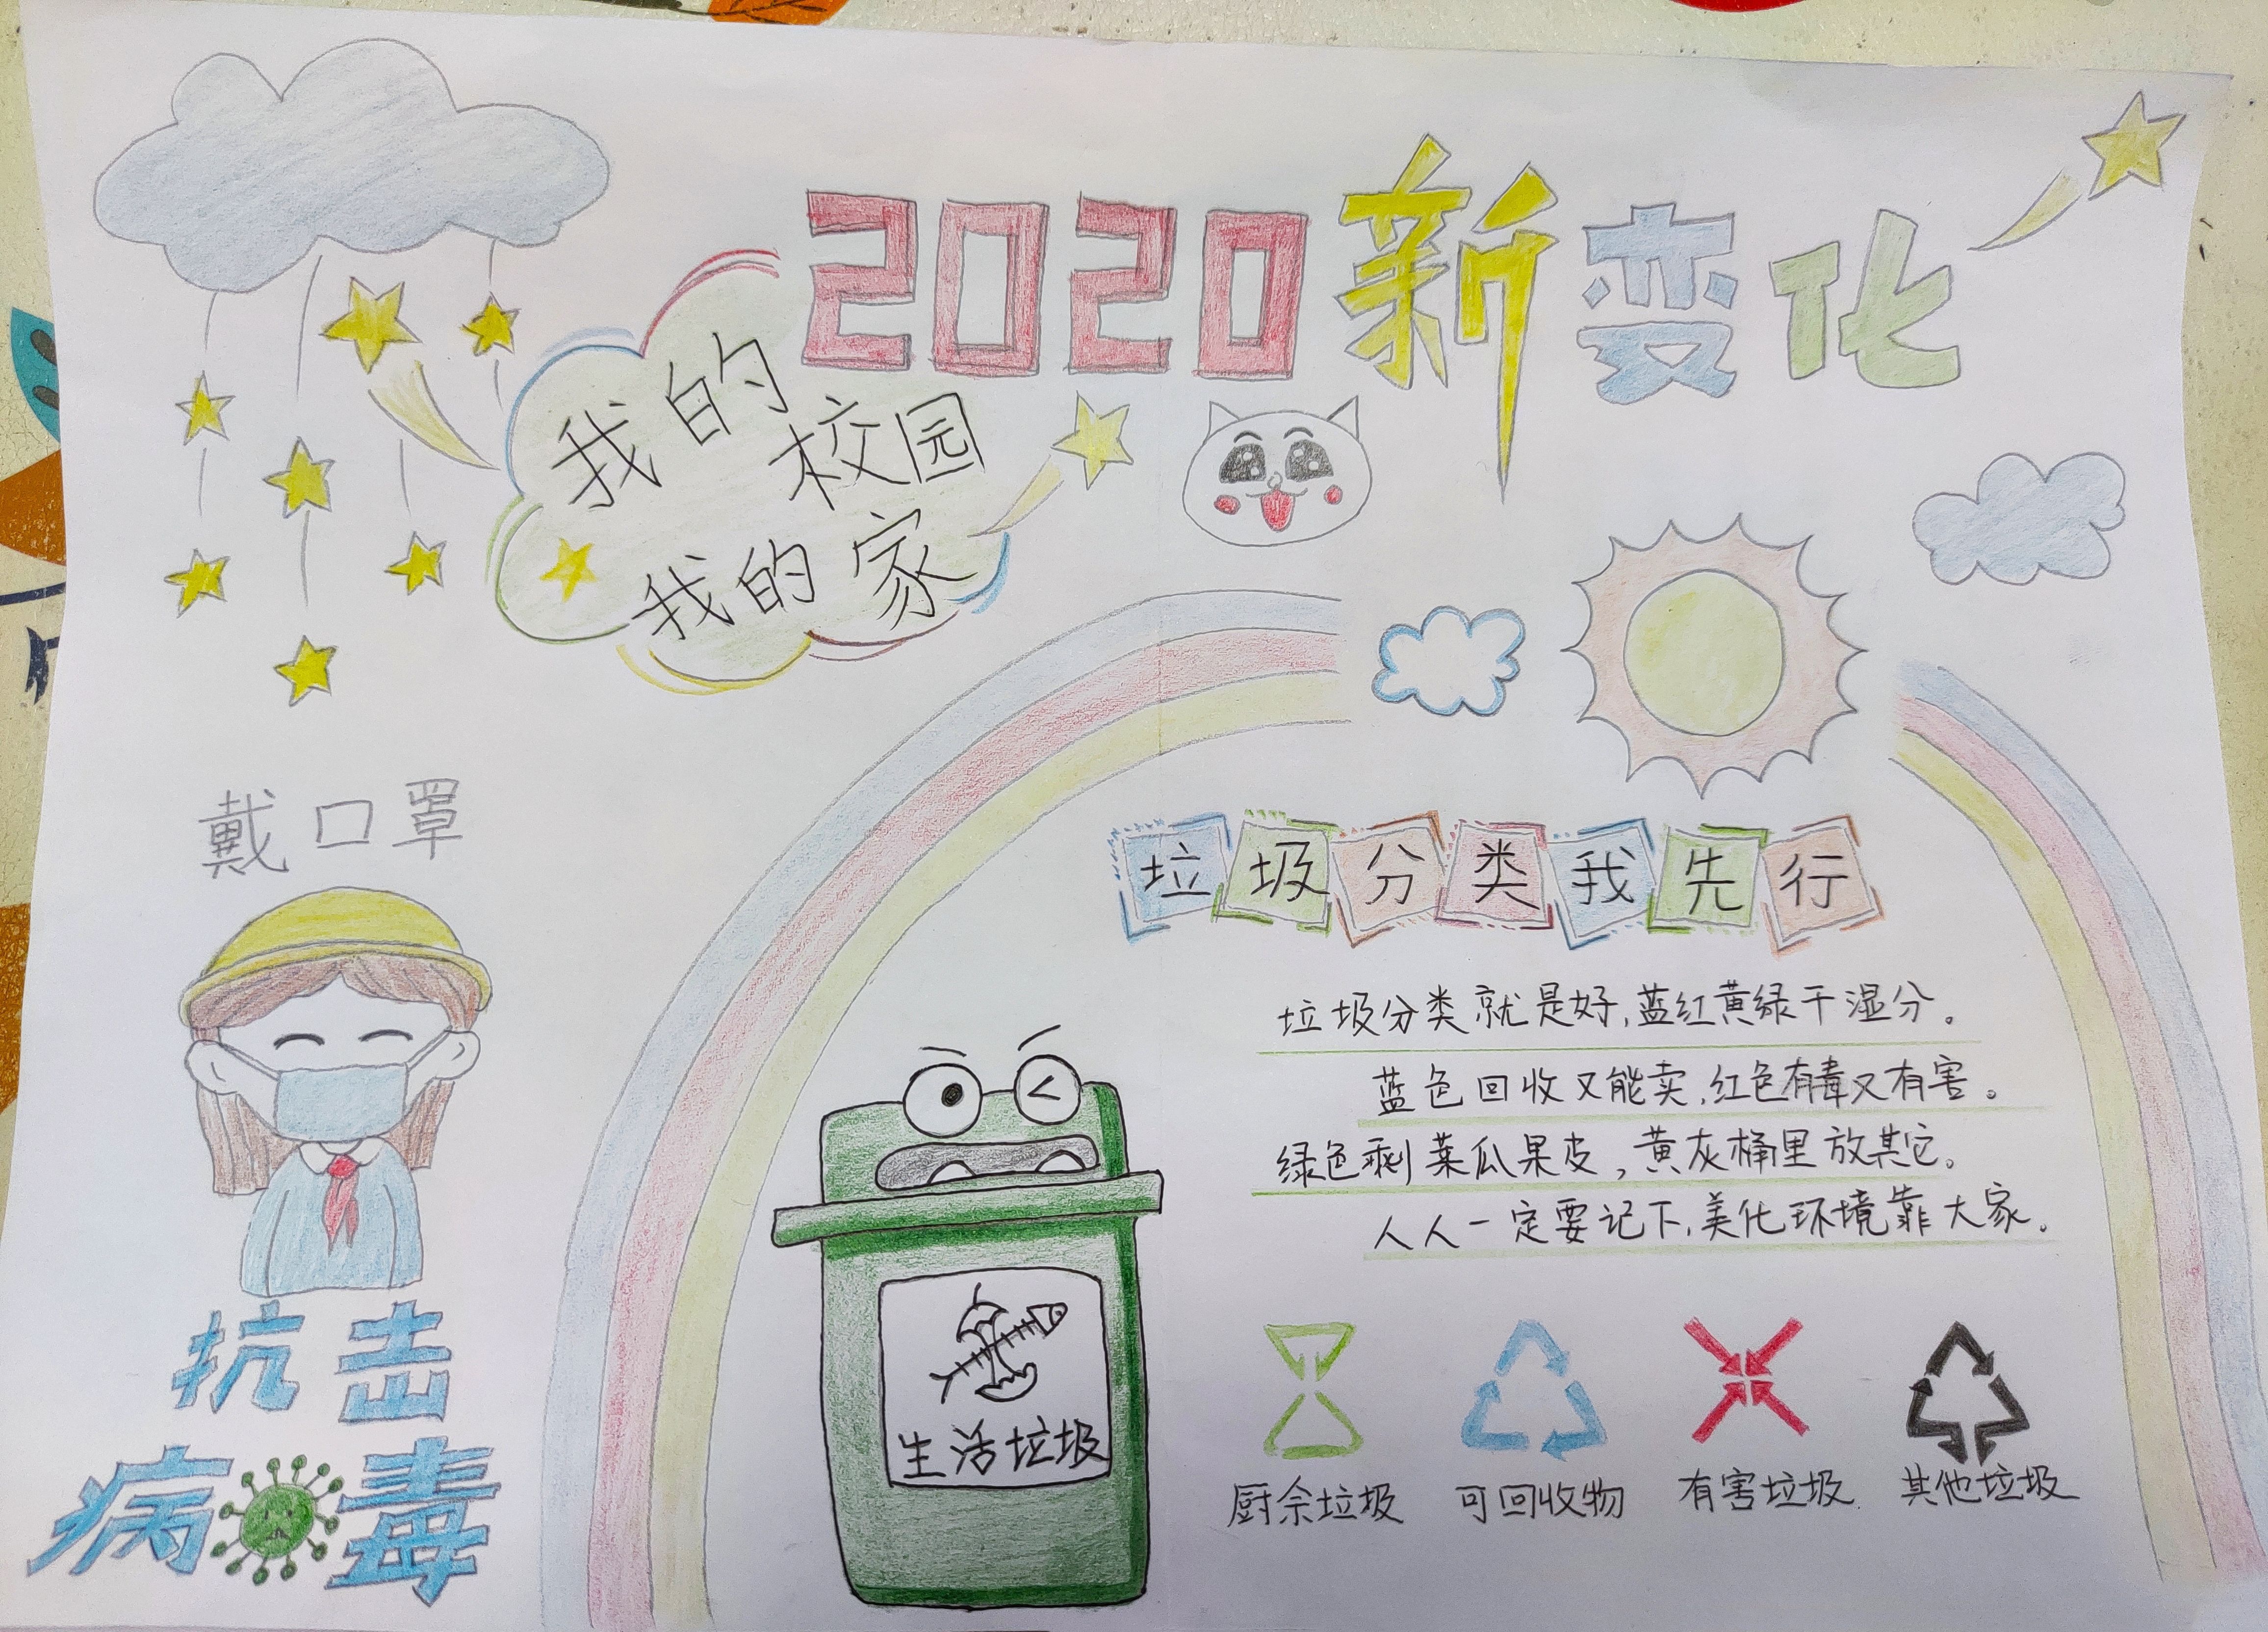 2020新变化
我的校园
我的家
戴口罩
抗击
病毒
垃圾分类我先行
垃圾分类就是好,蓝红黄绿干湿分。
蓝色回收又能卖,红色有毒又有害。
绿色剩菜瓜果皮,黄灰桶里放其它。
人人一定要记下,美化环境靠大家。
生活垃圾
厨余垃圾
可回收物
有害垃圾
其他垃圾